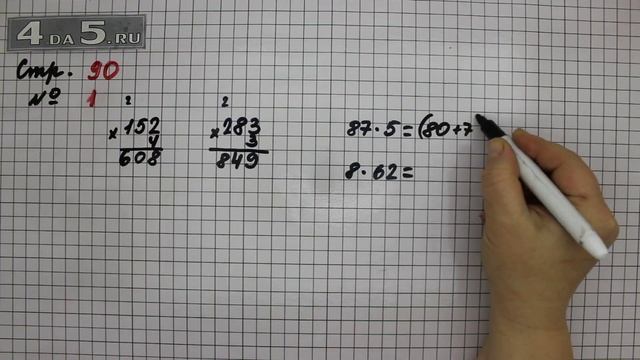 4 DA 5.RU
Стр. 90
№ 1
2
×152
4
608
2
×283
3
849
87·5=(80+7
8·62=